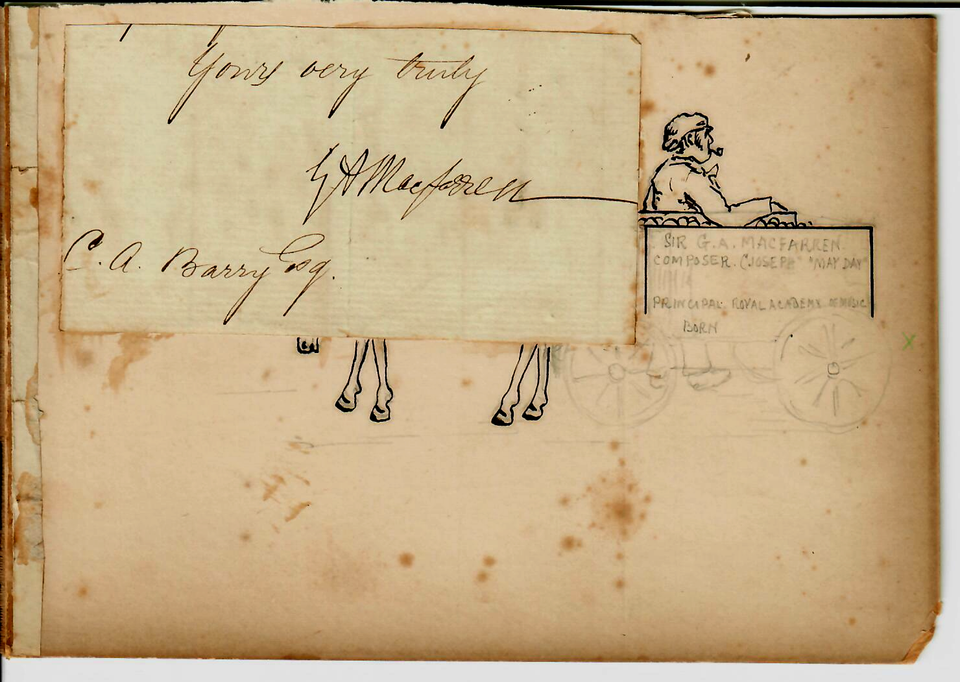 Yours very truly
G A Macfarren
C. A. Barry Esq.
SIR G.A. MACFARREN.
COMPOSER. (JOSEPH" "MAY DAY"
PRINCIPAL. ROYAL ACADEMY OF MUSIC
BORN